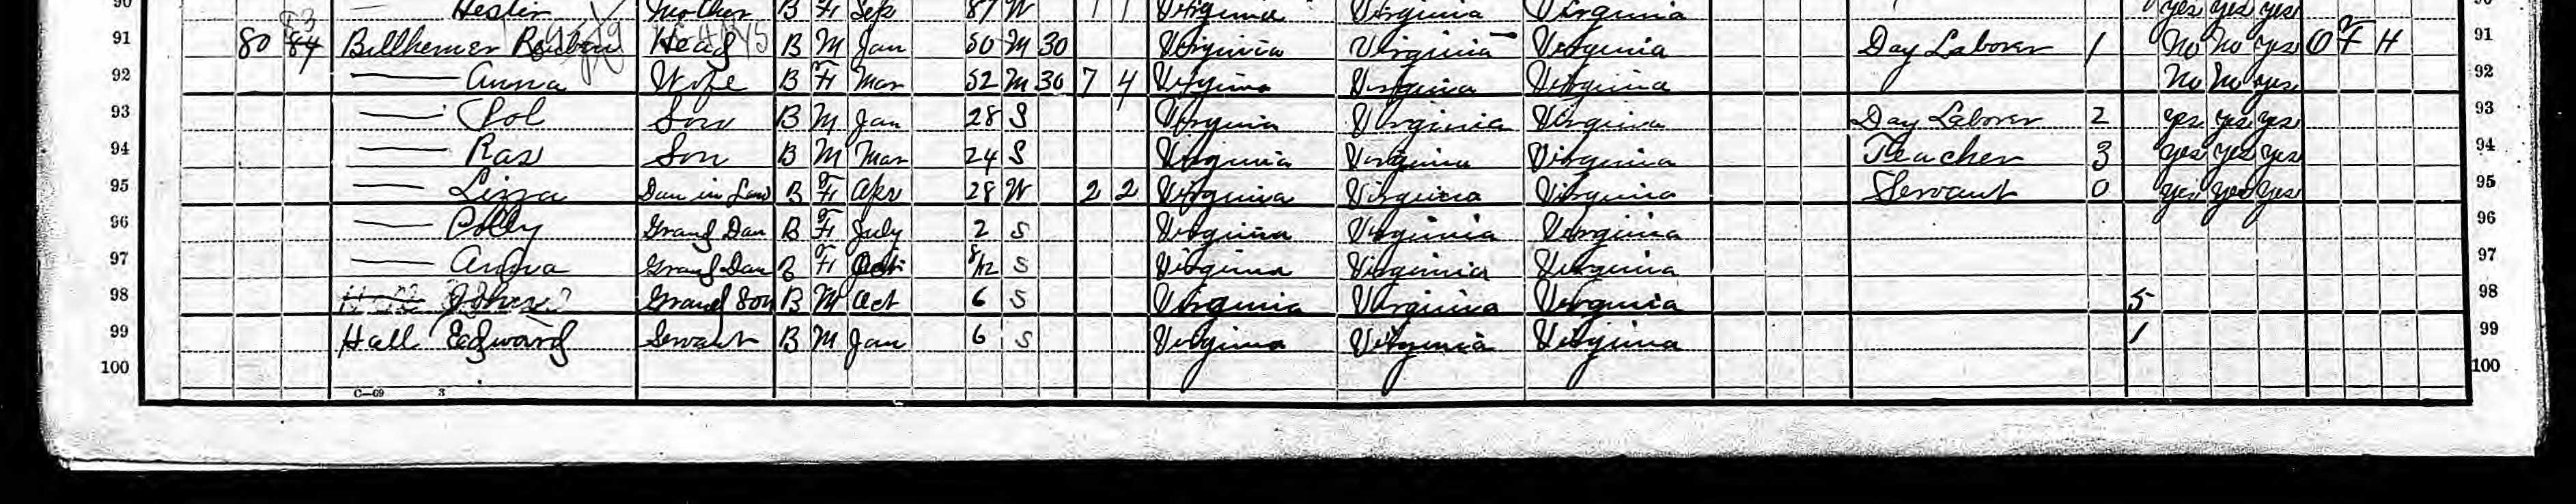 Hester Mother B F Sep 87 W 1 1 Virginia Virginia Virginia yes yes yes
91 80 84 Billhemer Reuben Head B M Jan 50 M 30 Virginia Virginia Virginia Day Laborer 1 No No yes O F H 91
92 Anna Wife B F Mar 52 M 30 7 4 Virginia Virginia Virginia No No yes 92
93 Sol Son B M Jan 28 S Virginia Virginia Virginia Day Laborer 2 yes yes yes 93
94 Ras Son B M Mar 24 S Virginia Virginia Virginia Teacher 3 yes yes yes 94
95 Lizza Dau in Law B F Apr 28 W 2 2 Virginia Virginia Virginia Servant 0 yes yes yes 95
96 Polly Grand Dau B F July 2 S Virginia Virginia Virginia 96
97 Anna Grand Dau B F Oct 8/12 S Virginia Virginia Virginia 97
98 Grand Son B M Oct 6 S Virginia Virginia Virginia 5 98
99 Hall Edward Servant B M Jan 6 S Virginia Virginia Virginia 1 99
100 100
C—69 3